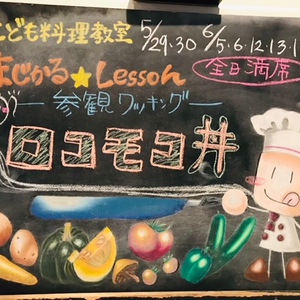 こども料理教室 5/29.30 6/5.6.12.13.1
まじかる★Lesson
全日満席
参観クッキング
ロコモコ丼